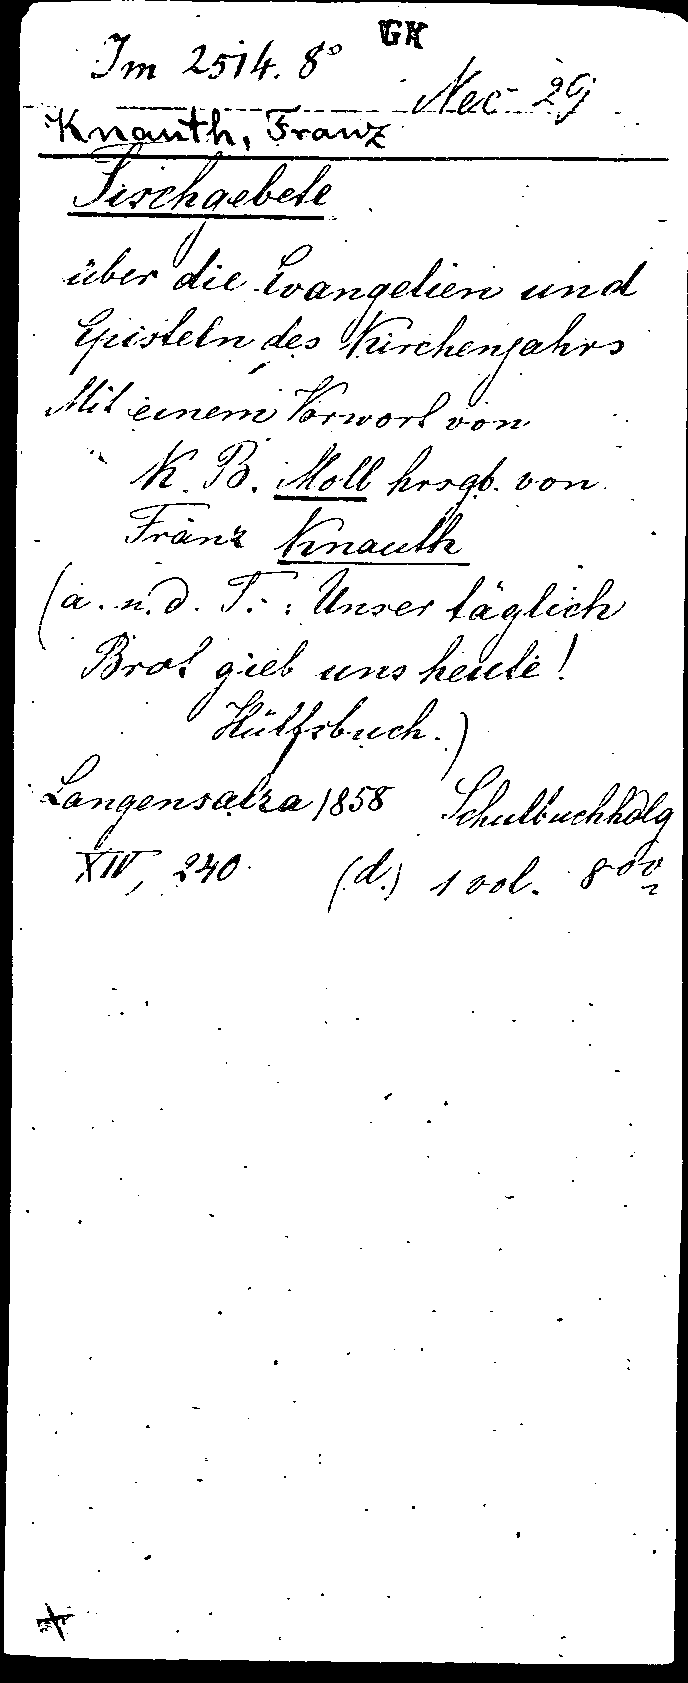 GK
Im 2514. 8°
Nec 29
Knauth, Franz
Tischgebete
über die Evangelien und
Episteln des Kirchenjahrs
Mit einem Vorwort von
K. B. Moll hrsgb. von
Franz Knauth
(a. u. d. T.: Unser täglich
Brot gieb uns heute!
Hülfsbuch.)
Langensalza 1858 Schulbuchhdlg
XIV, 240 (d.) 1 vol. 8